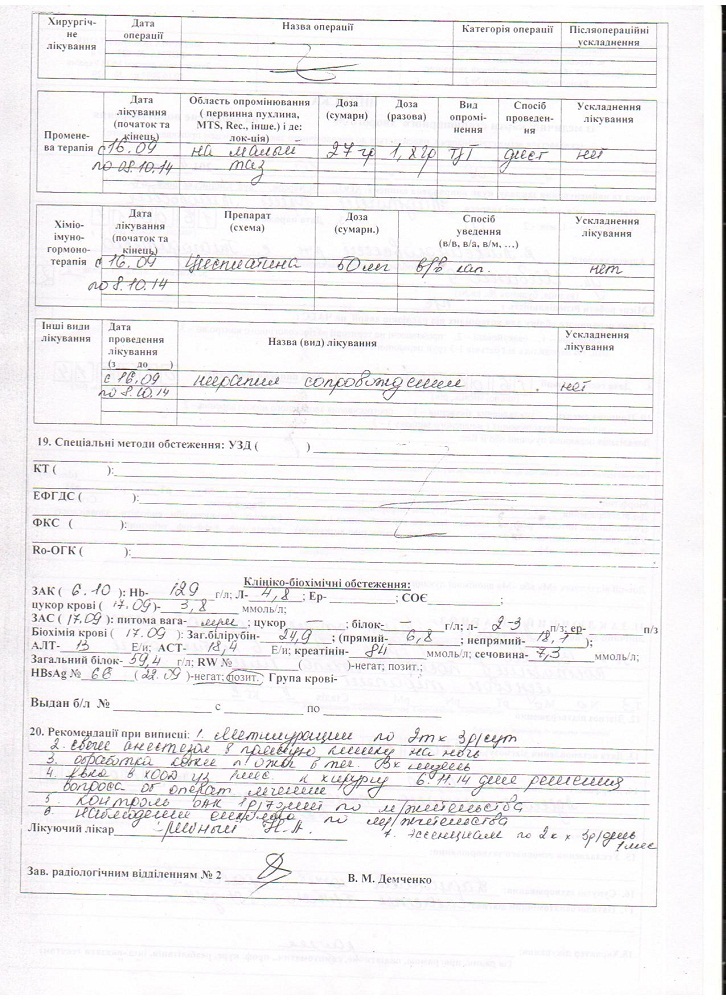 Хирургіч-
не
лікування
Дата
операції
Назва операції
Категорія операції
Післяопераційні
ускладнення
Промене-
ва терапія
Дата
лікування
(початок та
кінець)
Область опромінювання
( первинна пухлина,
MTS, Rec., інше.) і де:
лок-ція)
Доза
(сумарн)
Доза
(разова)
Вид
опромі-
нення
Спосіб
проведен-
ня
Ускладнення
лікування
с 16.09
на малый
27 гр
1,8 гр
нет
по 08.10.14
таз
Хіміо-
імуно-
гормоно-
терапія
Дата
лікування
(початок та
кінець)
Препарат
(схема)
Доза
(сумарн.)
Спосіб
уведення
(в/в, в/а, в/м, ...)
Ускладнення
лікування
с 16.09
Цисплатина
50 мг
в/в кап.
нет
по 8.10.14
Інші види
лікування
Дата
проведення
лікування
(з___до___)
Назва (вид) лікування
Ускладнення
лікування
с 16.09
терапия сопровождения
нет
по 8.10.14
19. Спеціальні методи обстеження: УЗД ( )
КТ ( ):
ЕФГДС ( ):
ФКС ( ):
Ro-ОГК ( ):
Клініко-біохімічні обстеження:
ЗАК ( 6.10 ): Hb- 129 г/л; Л- 4,8 ; Ер- ; СОЄ ;
цукор крові ( 17.09 )- 3,8 ммоль/л;
ЗАС ( 17.09 ): питома вага- ; цукор — ; білок- — г/л; л- 2-3 п/з; ер- п/з
Біохімія крові ( 17.09 ): Заг.білірубін- 24,9 ; (прямий- 6,8 ; непрямий- 18,1 );
АЛТ- 13 Е/и; АСТ- 18,4 Е/и; креатінін- 84 ммоль/л; сечовина- 7,3 ммоль/л;
Загальний білок- 59,4 г/л; RW № ( )-негат; позит.;
HBsAg № 66 ( 22.09 )-негат; позит. Група крові-
Выдан б/л № с по
20. Рекомендації при виписці: 1. Метилурацил по 2т х 3р/сут
2. свечи анестезол в прямую кишку на ночь
3. обработка кожи п/
4. явка в ХООД к хирургу 6.11.14 для решения
вопроса об операт. лечении
5. контроль ОАК 1р/7дней по м/жительства
6. наблюдение онколога по м/жительства
Лікуючий лікар
7. Эссенциале по 2к х 3р/день
1 мес
Зав. радіологічним відділенням № 2 В. М. Демченко